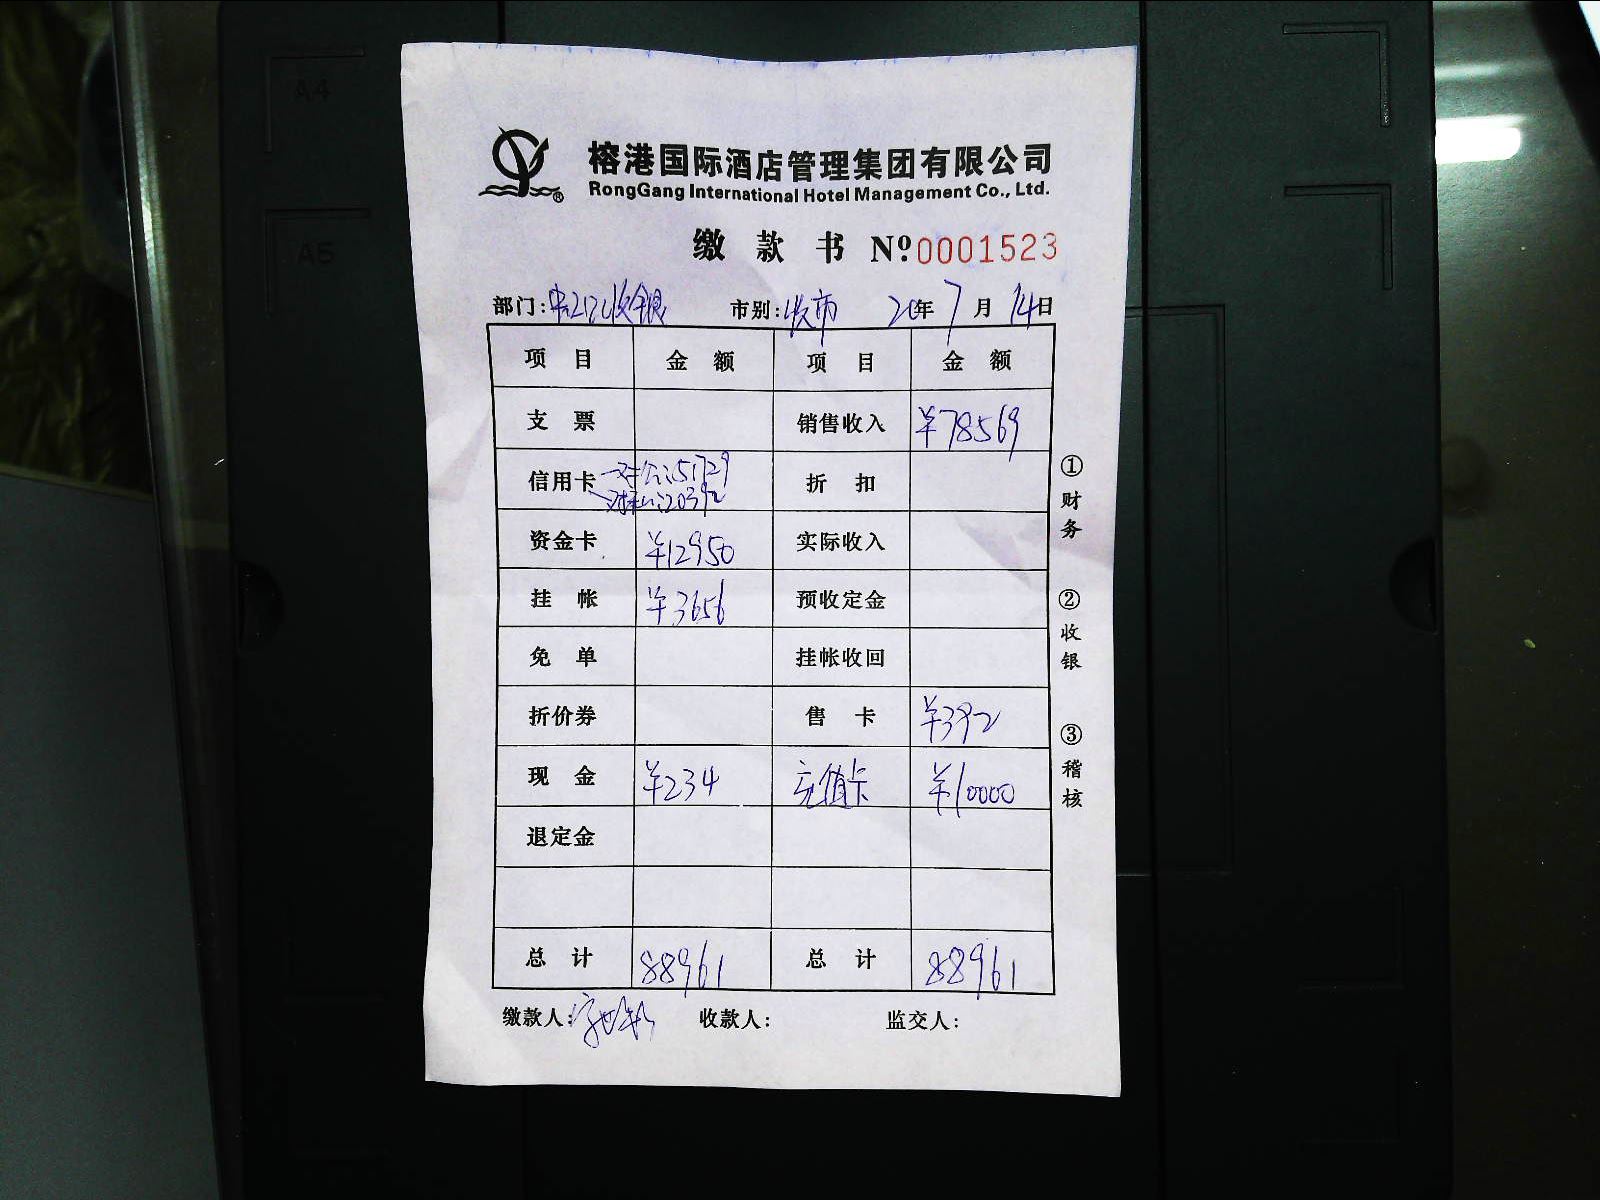 A4
A5
榕港国际酒店管理集团有限公司
RongGang International Hotel Management Co., Ltd.
缴款书 Nº0001523
部门: 收银 市别: 收市 20年7月14日
项目 金额 项目 金额
支票 销售收入 ¥78569
信用卡 对公:51729 折扣
对私:20392
资金卡 ¥12950 实际收入
挂帐 ¥3656 预收定金
免单 挂帐收回
折价券 售卡 ¥392
现金 ¥234 充值卡 ¥10000
退定金
总计 88961 总计 88961
缴款人: 收款人: 监交人:
①财务
②收银
③稽核